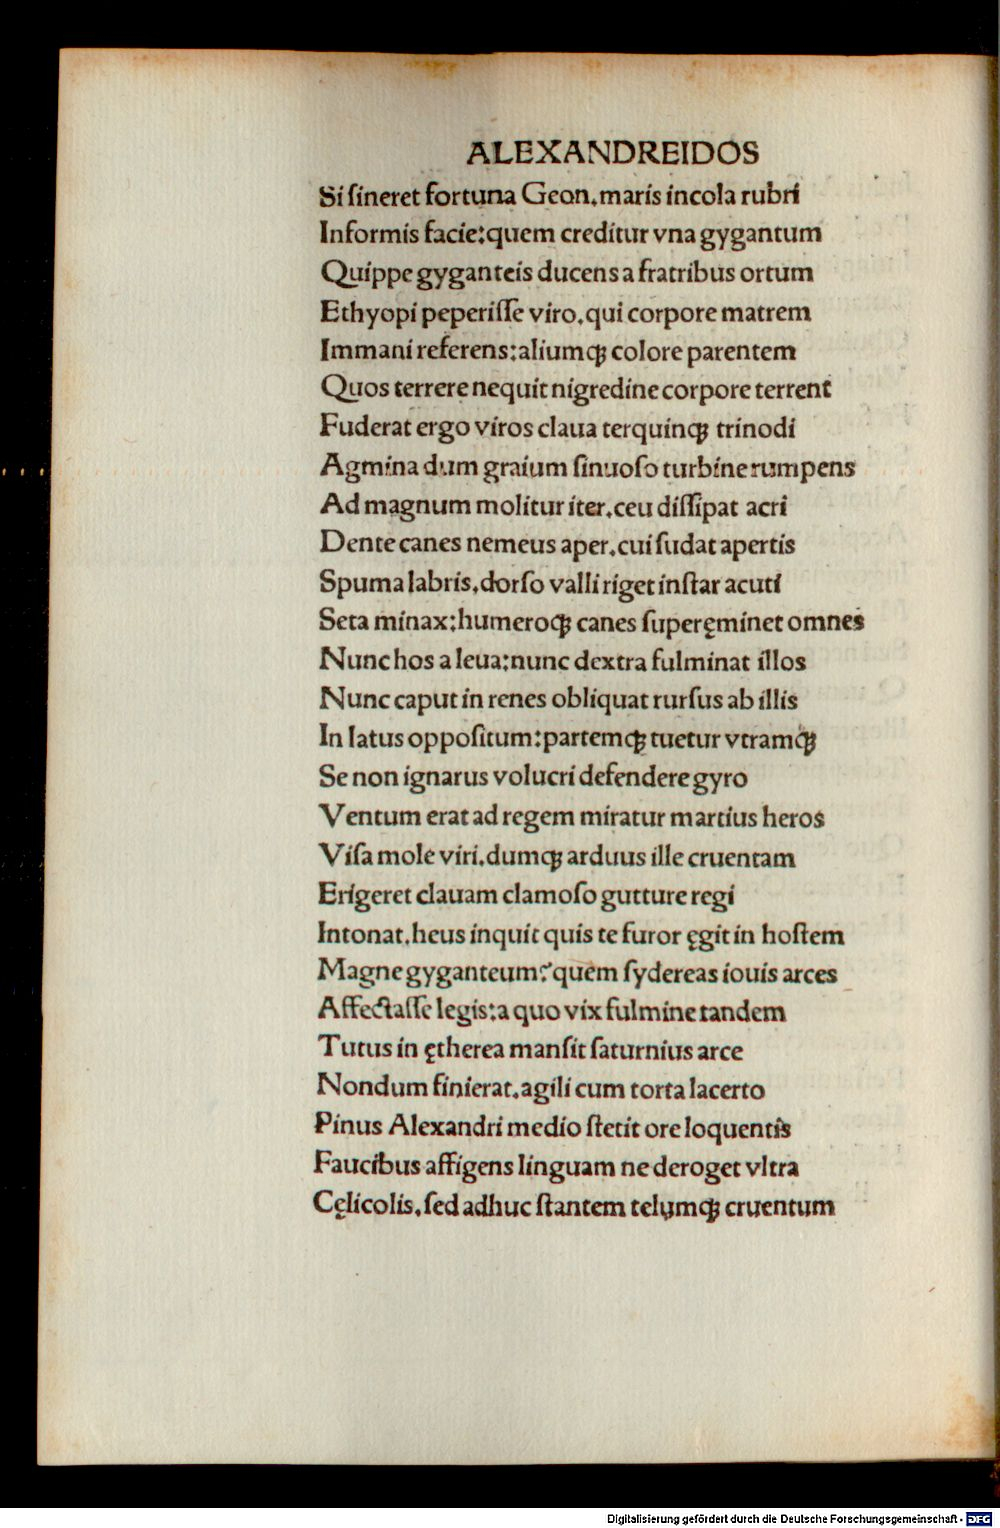 ALEXANDREIDOS
Si ſineret fortuna Geon.maris incola rubri
Informis facie:quem creditur vna gygantum
Quippe gyganteis ducens a fratribus ortum
Ethyopi peperiſſe viro.qui corpore matrem
Immani referens:aliumqꝫ colore parentem
Quos terrere nequit nigredine corpore terrent
Fuderat ergo viros claua terquinqꝫ trinodi
Agmina dum graium ſinuoſo turbine rumpens
Ad magnum molitur iter.ceu diſſipat acri
Dente canes nemeus aper.cui ſudat apertis
Spuma labris.dorſo valli riget inſtar acuti
Seta minax:humeroqꝫ canes ſuperęminet omnes
Nunc hos a leua:nunc dextra fulminat illos
Nunc caput in renes obliquat rurſus ab illis
In latus oppoſitum:partemqꝫ tuetur vtramqꝫ
Se non ignarus volucri defendere gyro
Ventum erat ad regem miratur martius heros
Viſa mole viri.dumqꝫ arduus ille cruentam
Erigeret clauam clamoſo gutture regi
Intonat.heus inquit quis te furor ęgit in hoſtem
Magne gyganteum?quem ſydereas iouis arces
Affectaſſe legis:a quo vix fulmine tandem
Tutus in ętherea manſit ſaturnius arce
Nondum finierat.agili cum torta lacerto
Pinus Alexandri medio ſtetit ore loquentis
Faucibus affigens linguam ne deroget vltra
Cęlicolis.ſed adhuc ſtantem telumqꝫ cruentum
Digitalisierung gefördert durch die Deutsche Forschungsgemeinschaft - DFG